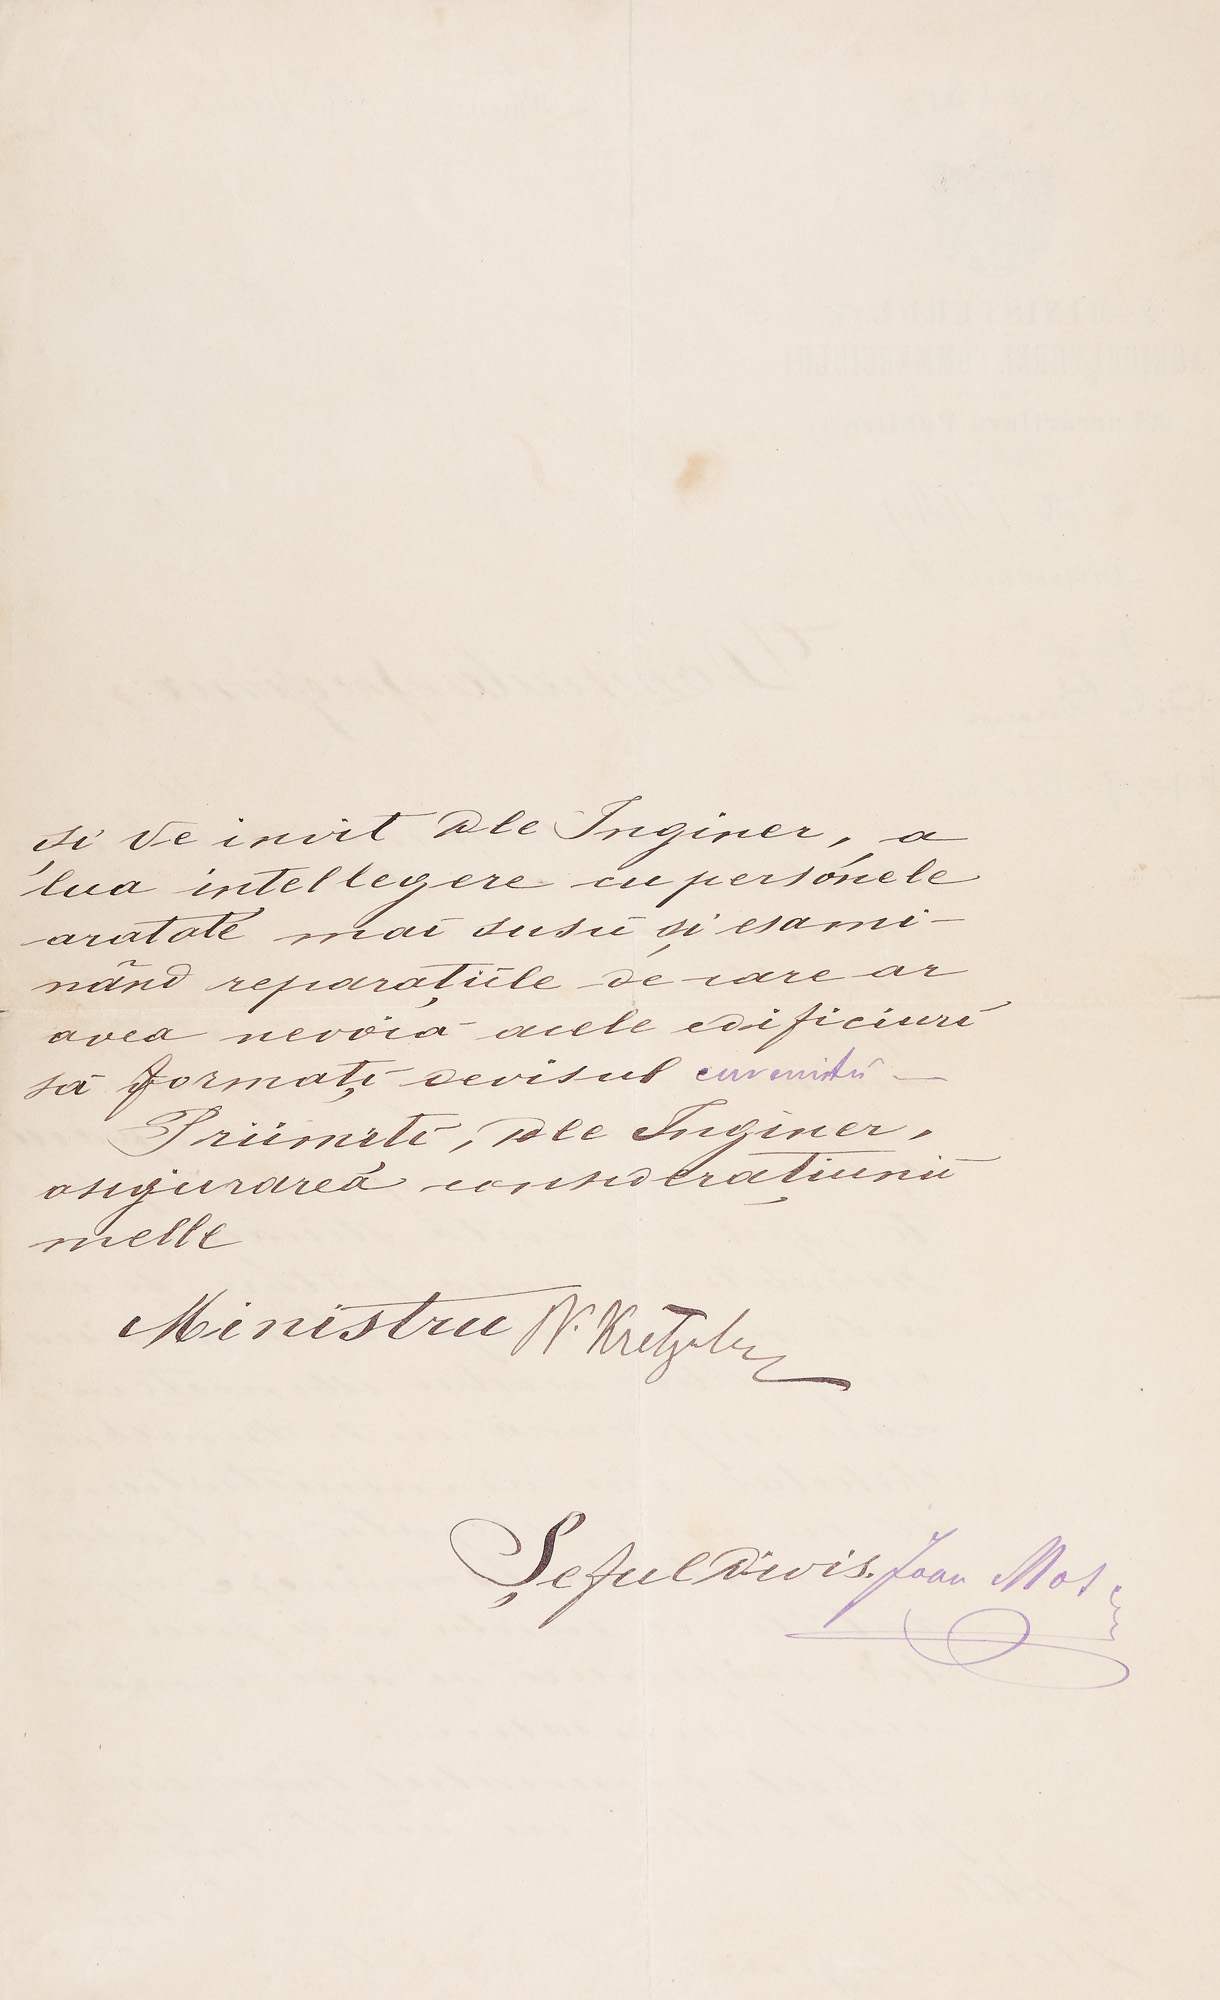 și Ve invit Dle Inginer, a
lua intellegere cu persónele
aratate mai susu și esami-
nând reparațiile de care ar
avea nevoiă acele edificiuri
să formați devisul cuvenitŭ —
Priimiti, Dle Inginer,
asigurarea consideratiunii
melle
Ministru N. Kretzulescu
Șeful Divis. Ioan